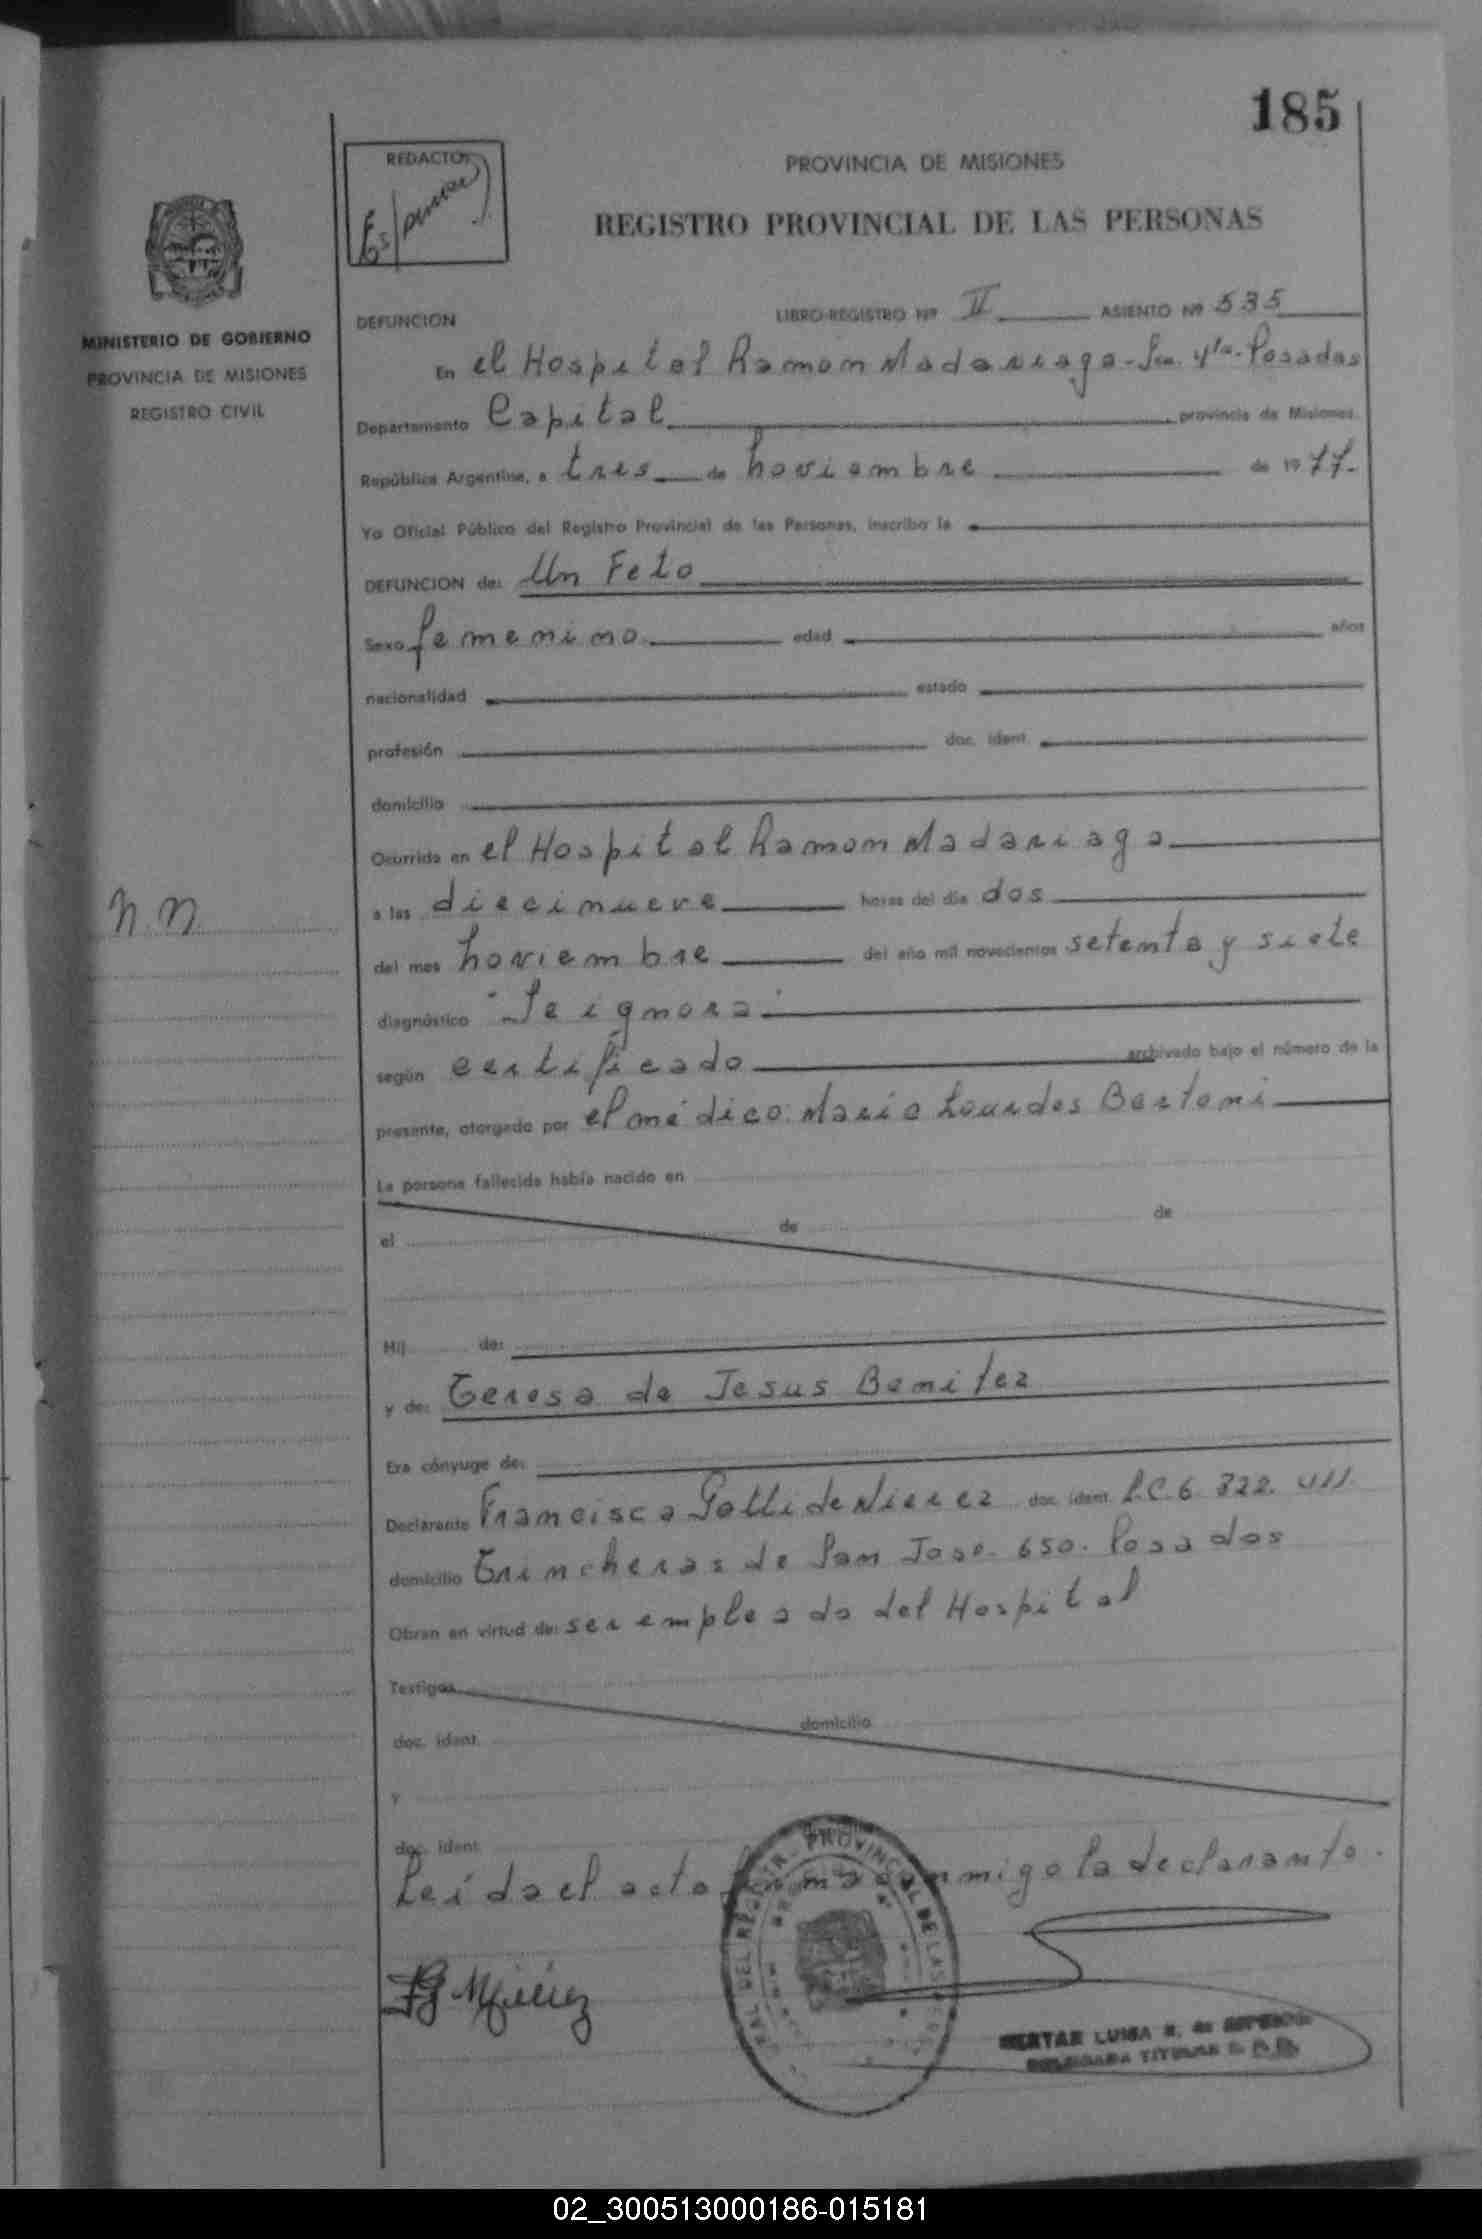 185
REDACTOR
PROVINCIA DE MISIONES
REGISTRO PROVINCIAL DE LAS PERSONAS
MINISTERIO DE GOBIERNO
PROVINCIA DE MISIONES
REGISTRO CIVIL
DEFUNCION LIBRO-REGISTRO Nº II ASIENTO Nº 535
En el Hospital Ramon Madariaga - Posadas
Departamento Capital provincia de Misiones.
República Argentina, a tres de noviembre de 19 77.
Yo Oficial Público del Registro Provincial de las Personas, inscribo la
DEFUNCION de: Un Feto
Sexo femenino edad años
nacionalidad estado
profesión doc. ident.
domicilio
Ocurrida en el Hospital Ramon Madariaga
N.N.
a las diecinueve horas del día dos
del mes noviembre del año mil novecientos setenta y siete
diagnóstico "Se ignora"
según certificado archivado bajo el número de la
presente, otorgado por el médico: Maria Lourdes Bertoni
La persona fallecida había nacido en
el de de
Hij de:
y de: Teresa de Jesus Benitez
Era cónyuge de:
Declarante Francisca Galli de doc. ident. L.C. 6.822.
domicilio Trincheras de San Jose. 650. Posadas
Obran en virtud de: ser empleada del Hospital
Testigos
doc. ident. domicilio
y
doc. ident.
Leída el acta conmigo la declarante.
02_300513000186-015181